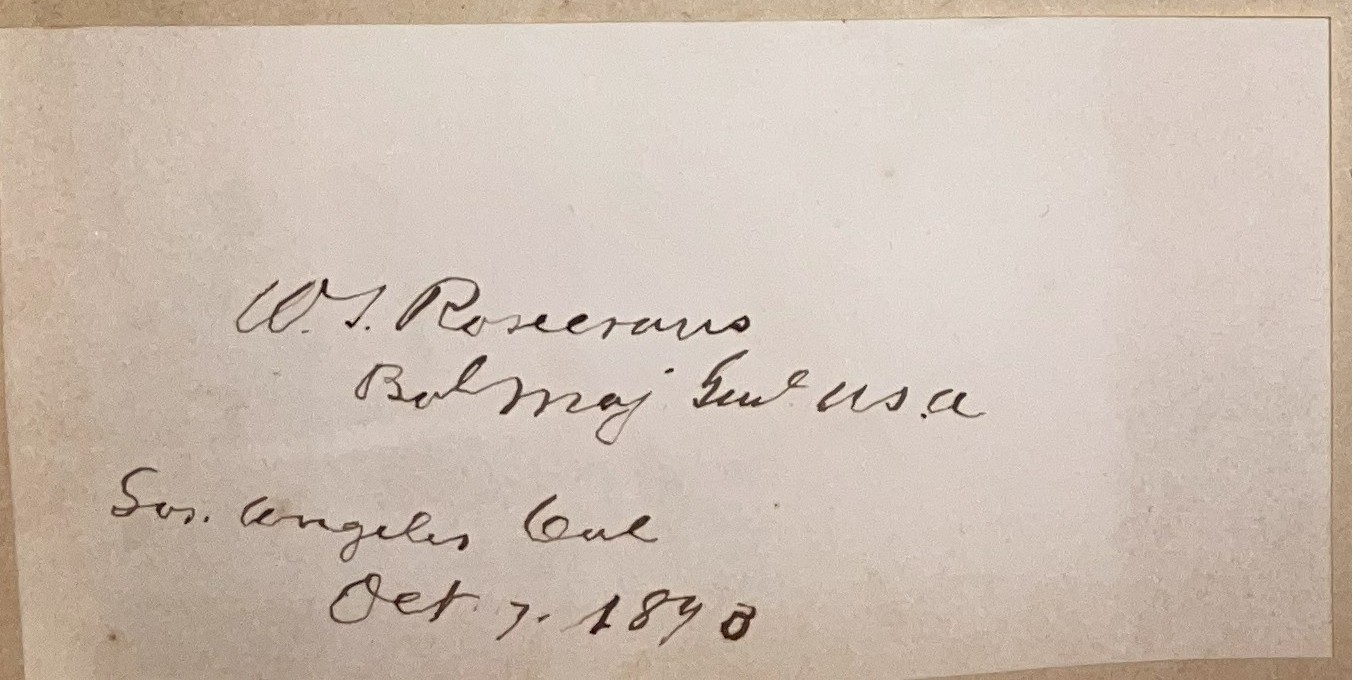 W. S. Rosecrans
Bvt Maj Genl U S. A
Los. Angeles Cal
Oct 7. 1893